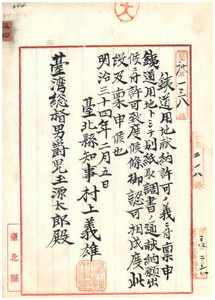 鉄道用地献納許可ノ義ニ付稟申
鉄道用地トシテ別紙取調書ノ通献納願出
候ニ付許可致度候條御認可相成度此
段及稟申候也
明治三十四年二月五日
臺北縣知事村上義雄
臺湾総督男爵児玉源太郎殿
臺北縣